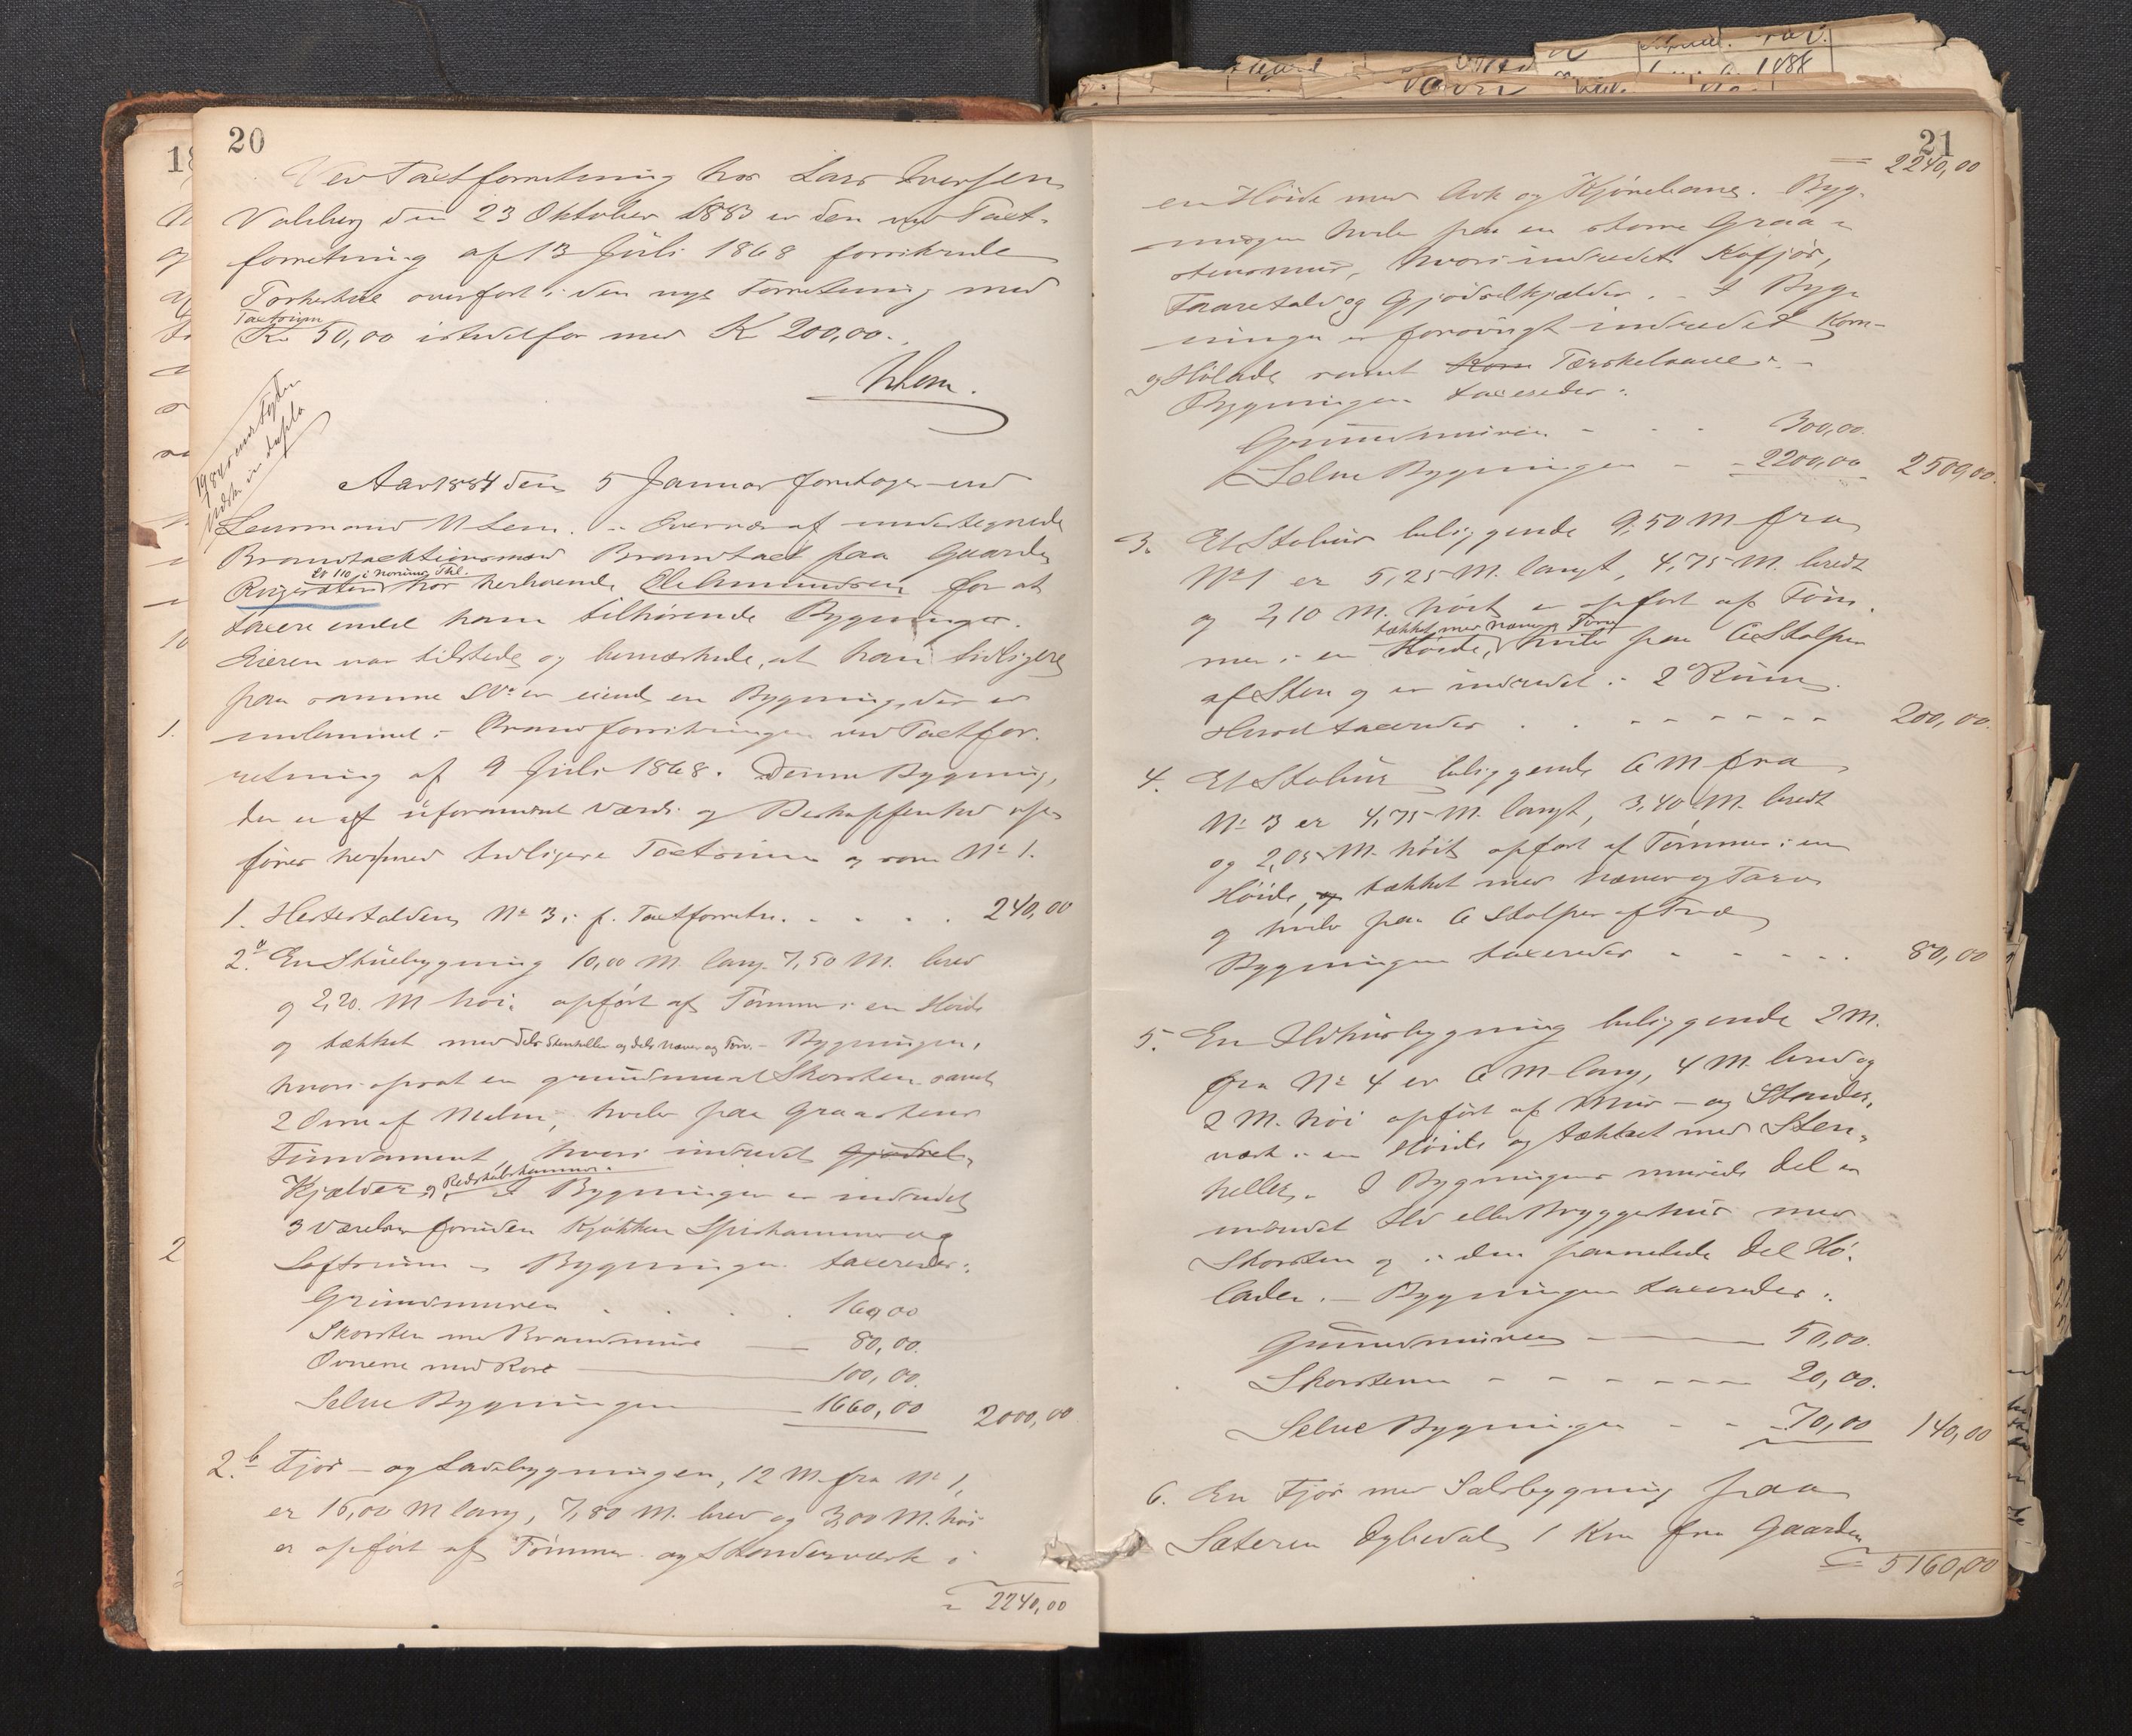 20
Ved Taxtforretning hos Lars Iversen
Valberg den 23 Oktober 1883 er den ved Taxt-
forretning af 13 Juli 1868 forsikrede
overført i den nye Forretning med
Taxtsum
Kr 50,00 istedetfor med Kr 200,00.
NLem.
in duplo
Aar 1884 den 5 Januar foretoges ved
Lensmand N Lem. Overvær af undertegnede
Brandtaxtionsmænd Brandtaxt paa Gaarden
LN 110 i Norums Thl.
hos herværende Ole Amundsen for at
taxere endel ham tilhørende Bygninger.
Eieren var tilstede og bemærkede, at han tidligere
paa samme SVº er eiende en Bygning, der er
indlemmet i Brandforsikringen ved Taxtfor-
retning af 9 Juli 1868. Denne Bygning,
der er af uforandret Værdi og Beskaffenhed op-
føres hermed tidligere Taxtsum og som Nº 1.
1. Hestestalden Nº 3 i f. Taxtforretn. . . . . 240,00
2.a En Stuebygning 10,00 M. lang 7,50 M. bred
og 2,20 M høi opført af Tømmer i en Høide
og tækket med dels Stenheller og dels Næver og Torv. - Bygningen,
hvori opsat en grundmuret Skorsten samt
2 Ovne af Malm, hviler paa Graastens
Fundament, hvori indredet Gjødsel-
Kjælder og Redskabskammer. I Bygningen er indredet
3 Værelser foruden Kjøkken Spiskammer og
Loftrum - Bygningen taxeredes:
Grundmuren . . . . 160,00
Skorsten med Brandmure — 80,00.
Ovnene med Rør — 100,00.
Selve Bygningen — 1660,00 2000,00
2.b Fjøs- og Ladebygningen, 12 M. fra Nº 1,
er 16,00 M lang, 7,80 M. bred og 3,00 M. høi
er opført af Tømmer og Stenderværk i
= 2240,00
21
= 2240,00
en Høide med Ark og Kjørebane. Byg-
ningen hviler paa en større Graa-
stensmur, hvori indredet Kofjøs,
Faarestald og Gjødselkjælder. - I Byg-
ningen er forøvrigt indredet Korn-
og Hølade samt Korn Tærskelaave. -
Bygningen taxeredes:
Grundmuren - - - 300,00.
Selve Bygningen - - 2200,00 2500,00.
3. Et Stabur beliggende 9,50 M fra
Nº 1 er 5,25 M. langt, 4,75 M. bredt
og 2,10 M. høit er opført af Tøm-
tækket med Næver og Torv
mer i en Høide, hviler paa 6 Stolper
af Sten og er indredet i 2 Rum.
Huset taxeredes . . - - - - - - 200,00.
4. Et Stabur beliggende 6 M fra
Nº 3 er 4,75 M. langt, 3,40 M. bredt
og 2,05 M. høit opført af Tømmer i en
Høide, og tækket med Næver og Torv
og hviler paa 6 Stolper af Træ
Bygningen taxeredes - - - - . 80,00
5. En Ildhusbygning beliggende 2 M.
fra Nº 4 er 6 M lang, 4 M. bred og
2 M. høi opført af Mur- og Stender-
værk i en Høide og tækket med Sten-
heller. I Bygningens murede Del er
indredet Ild eller Bryggehus med
Skorsten og i den panelede Del Hø-
lade. - Bygningen taxeredes:
Grundmuren — 50,00.
Skorstenen - - - - - 20,00.
Selve Bygningen - - 70,00 140,00
6. En Fjøs med Selsbygning paa
Sæteren Dybedal 1 Km fra Gaarden
= 5160,00